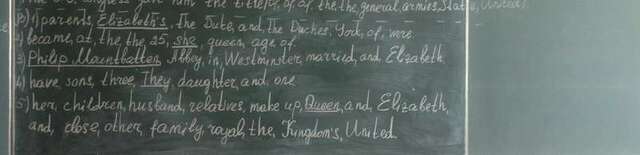 gave him the title, of, of the, the, general, armies, States, United.
1) parents, Elizabeth's, The Duke, and, the Duches, York, of, were
2) became, at, the, the, 25, she, queen, age, of
3) Philip Mountbatten, Abbey, in, Westminster, married, and, Elizabeth
4) have, sons, three, They, daughter, and, one
5) her, children, husband, relatives, make up, Queen, and, Elizabeth,
and, close, other, family, royal, the, Kingdom's, United